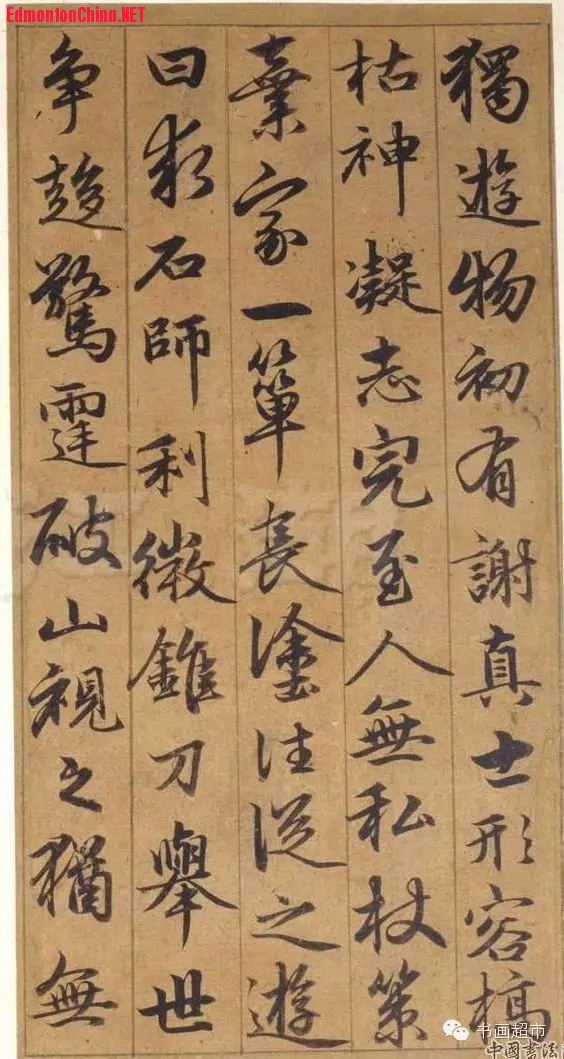 EdmontonChina.NET
獨遊物初有謝真士形容槁
枯神凝志完至人無私杖策
棄家一簞長塗往從之遊
曰求石師利徼錐刀舉世
争趍驚霆破山視之猶無
书画超市
中国書法